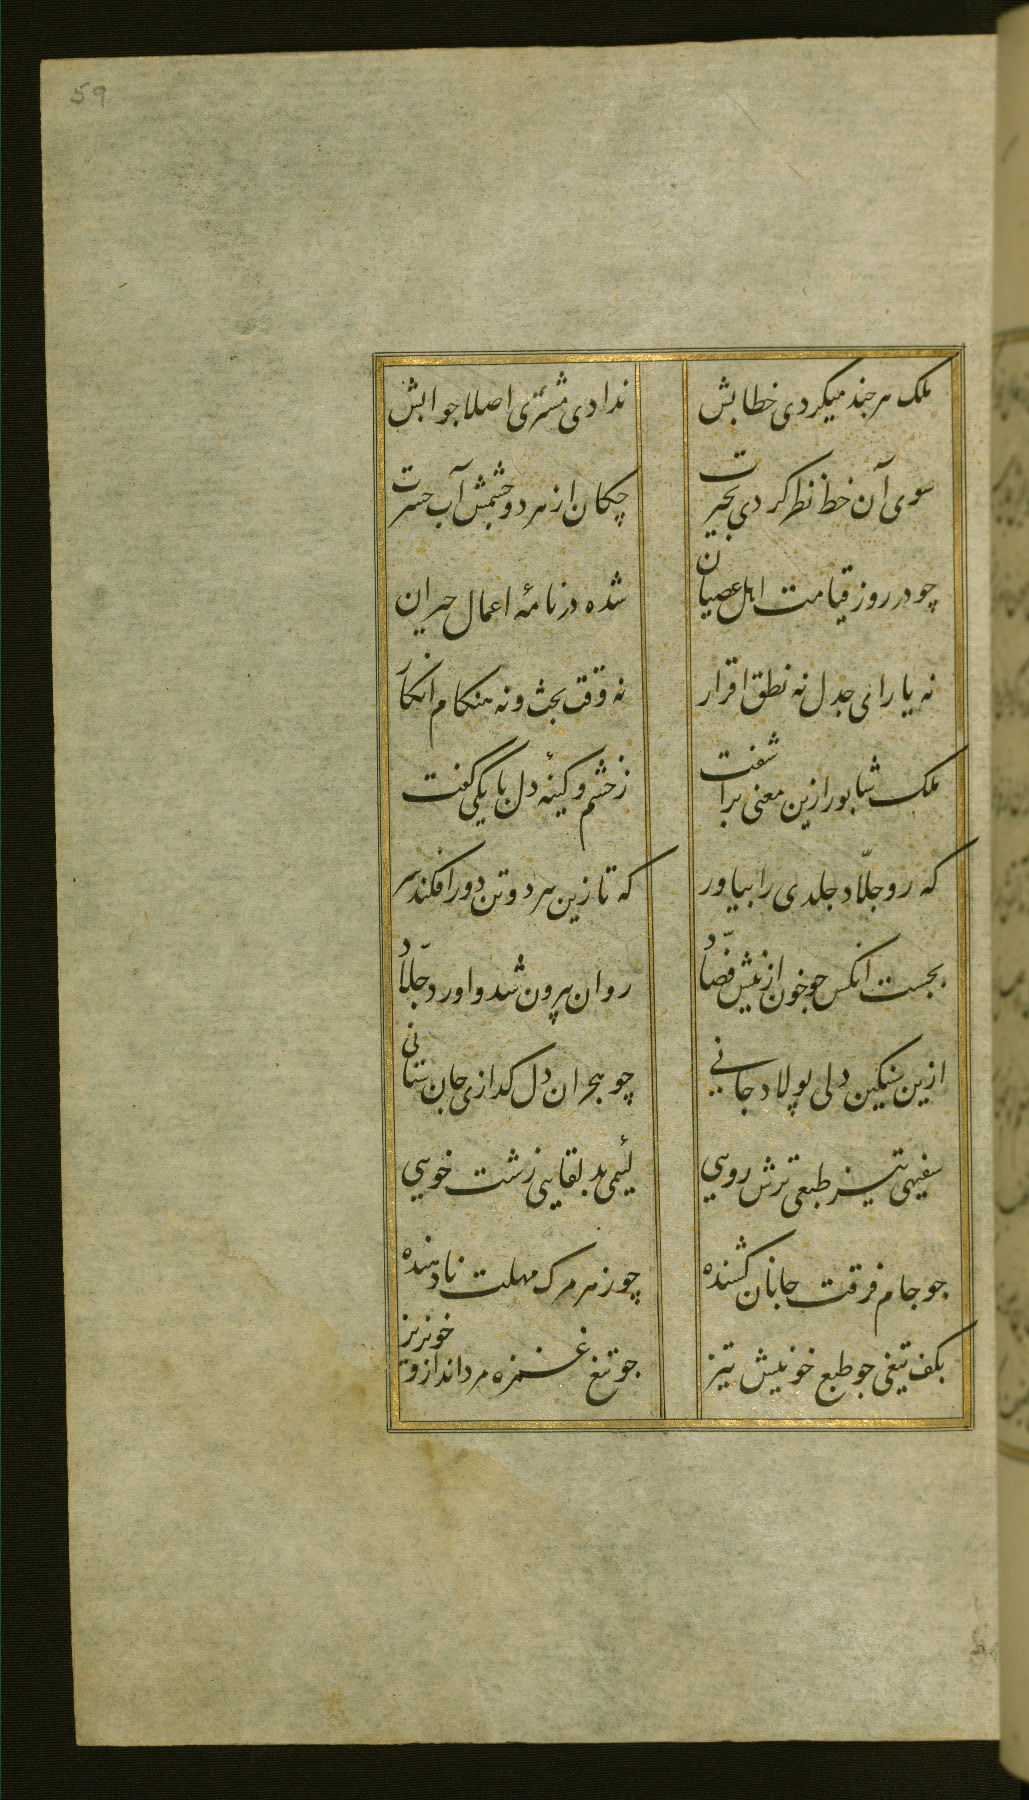 59
ملک هر چند میکردی خطابش ندادی مشتری اصلا جوابش
سوی آن خط نظر کردی بحیرت چکان از هر دو چشمش آب حسرت
چو در روز قیامت اهل عصیان شده در نامهٔ اعمال حیران
نه یارای جدل نه نطق اقرار نه وقت بحث و نه هنکام انکار
ملک شابور ازین معنی براشفت ز خشم و کینهٔ دل با یکی کفت
که رو جلّاد جلدی را بیاور که تا زین هر دو تن دور افکند سر
بجست انکس جو خون از نیش فصّاد روان بیرون شد و اورد جلّاد
ازین سنکین دلی پولاد جانی چو هجران دل کدازی جان ستانی
سفیهی تیز طبعی ترش رویی لئیمی بد لقایی زشت خویی
جو جام فرقت جانان کشنده چو زهر مرک مهلت نادهنده
بکف تیغی جو طبع خویش تیز جو تیغ غمزه مرد انداز و خونریز